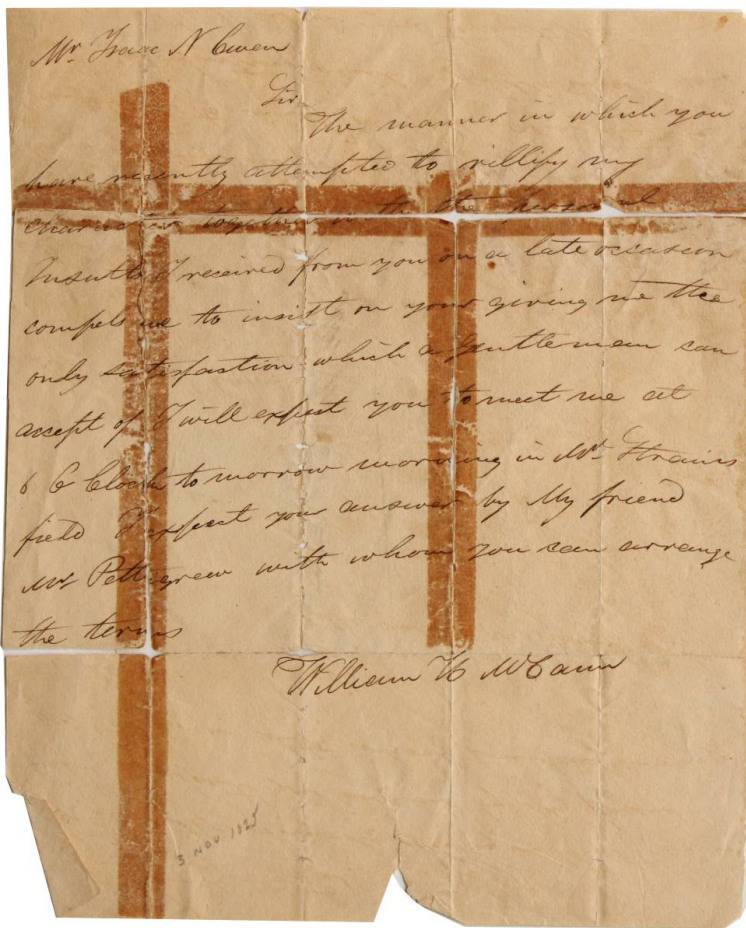 Mr. Isaac N Cwen
Sir
The manner in which you
have recently attempted to villify my
character together with the personal
Insults I received from you on a late occasion
compels me to insist on your giving me the
only satisfaction which a gentleman can
accept of I will expect you to meet me at
6 O Clock to morrow morning in Mr. Strains
field I expect your answer by My friend
Mr Pettigrew with whom you can arrange
the terms
William H McCann
3 NOV 1825